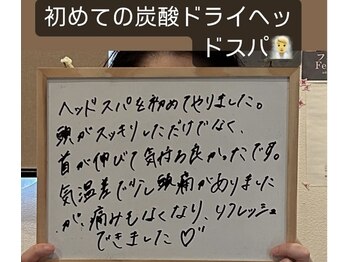 初めての炭酸ドライヘッ
ドスパ👼
ヘッドスパを初めてやりました。
頭がスッキリしただけでなく、
首が伸びて気持ち良かったです。
気温差で少し頭痛がありました
が、痛みもなくなり、リフレッシュ
できました♡
フ
Fe